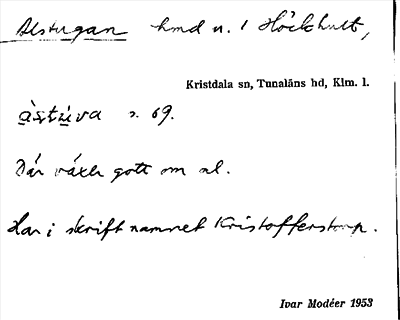 Alstugan hmd u. 1 Höckhult,
Kristdala sn, Tunaläns hd, Klm. l.
àstúva s. 69.
Där växer gott om al.
Har i skrift namnet Kristofferstorp.
Ivar Modéer 1953